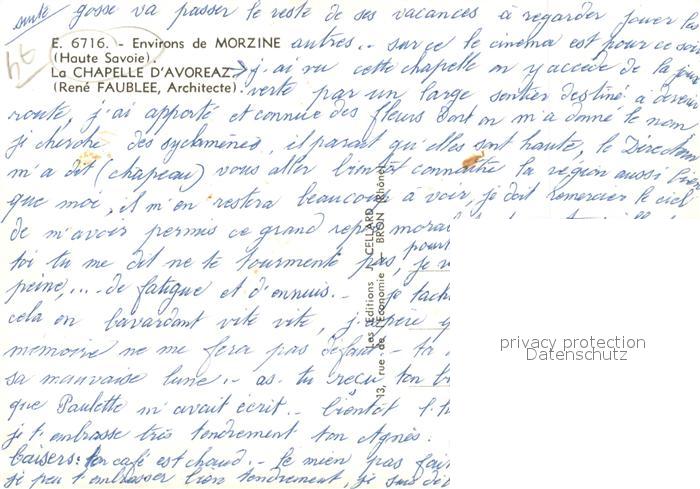 suite gosse va passer le reste de ses vacances à regarder jouer les
E. 6716. - Environs de MORZINE
(Haute Savoie).
La CHAPELLE D'AVOREAZ
(René FAUBLEE, Architecte).
autres .. sur ce le cinéma est pour ce soir
j'ai vu cette chapelle on y accède de la
verte par un large sentier destiné à devenir
route, j'ai apporté et connue des fleurs dont on m'a donné le nom
je cherche des syclamènes, il parait qu'elles sont haute, le Directeur
m'a dit (chapeau) vous aller bientôt connaître la région aussi bien
que moi, il m'en restera beaucoup à voir, je doit remercier le ciel
de m'avoir permis ce grand repos moral
pourt
toi tu me dit ne te tourmente pas, je
peine, ... de fatigue et d'ennuis .- je tach
cela en bavardant vite vite, j'espère
memoire ne me fera pas défaut - ta
sa mauvaise lune .- as-tu reçu ton
que Paulette m'avait écrit .- bientôt
je t'embrasse très tendrement ton Agnès.
Baisers: ton café est chaud .- le mien pas
si peu t'embrasser bien tendrement, je suis
Les Editions J. CELLARD
13, rue de l'Economie - BRON (Rhône)
privacy protection
Datenschutz